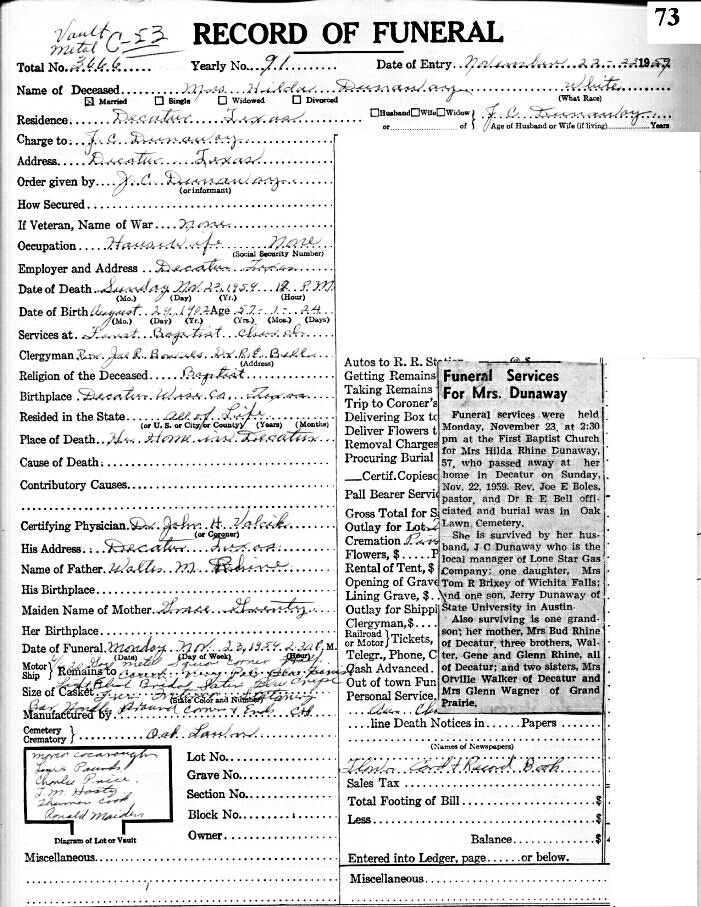 73
Vault
Metal C-53
RECORD OF FUNERAL
Total No. 3666 Yearly No. 91 Date of Entry November 22-23 1959
Name of Deceased Mrs. Hilda Dunaway White
(What Race)
☒ Married ☐ Single ☐ Widowed ☐ Divorced
Residence Decatur Texas ☐Husband☐Wife☐Widow } J. C. Dunaway
or of Age of Husband or Wife (if living) Years
Charge to J. C. Dunaway
Address Decatur Texas
Order given by J. C. Dunaway
(or informant)
How Secured
If Veteran, Name of War None
Occupation Housewife None
(Social Security Number)
Employer and Address Decatur Texas
Date of Death Sunday Nov. 22, 1959 12 P M
(Mo.) (Day) (Yr.) (Hour)
Date of Birth August 29 1902 Age 57-1-24
(Mo.) (Day) (Yr.) (Yrs.) (Mos.) (Days)
Services at First Baptist Church
Clergyman Rev. Dr. R. E. Bell
(Address)
Religion of the Deceased Baptist
Birthplace Decatur Wise Co. Texas
Resided in the State All of Life
(or U. S. or City or County) (Years) (Months)
Place of Death Her Home in Decatur
Cause of Death
Contributory Causes
Certifying Physician Dr. John H.
(or Coroner)
His Address Decatur Texas
Name of Father Walter M. Rhine
His Birthplace
Maiden Name of Mother
Her Birthplace
Date of Funeral Monday Nov. 23, 1959 2:30 P. M.
(Day of Week) (Hour)
Motor
Ship } Remains to
Size of Casket
(State Color and Number)
Manufactured by
Cemetery
Crematory } Oak Lawn
Charlie Price
Diagram of Lot or Vault
Lot No.
Grave No.
Section No.
Block No.
Owner
Miscellaneous
Autos to R. R. Station
Getting Remains
Taking Remains
Trip to Coroner's
Delivering Box to
Deliver Flowers t
Removal Charges
Procuring Burial
Certif. Copies
Pall Bearer Servi
Gross Total for S
Outlay for Lot
Cremation
Flowers, $ P
Rental of Tent, $
Opening of Grave
Lining Grave, $
Outlay for Shippi
Clergyman, $
Railroad
or Motor } Tickets,
Telegr., Phone, C
Cash Advanced
Out of town Fun
Personal Service,
line Death Notices in Papers
(Names of Newspapers)
Card & Record Book
Sales Tax
Total Footing of Bill $
Less $
Balance $
Entered into Ledger, page or below.
Miscellaneous
Funeral Services
For Mrs. Dunaway
Funeral services were held
Monday, November 23, at 2:30
pm at the First Baptist Church
for Mrs Hilda Rhine Dunaway,
57, who passed away at her
home in Decatur on Sunday,
Nov. 22, 1959. Rev. Joe E Boles,
pastor, and Dr R E Bell offi-
ciated and burial was in Oak
Lawn Cemetery.
She is survived by her hus-
band, J C Dunaway who is the
local manager of Lone Star Gas
Company; one daughter, Mrs
Tom R Brixey of Wichita Falls;
and one son, Jerry Dunaway of
State University in Austin.
Also surviving is one grand-
son; her mother, Mrs Bud Rhine
of Decatur, three brothers, Wal-
ter, Gene and Glenn Rhine, all
of Decatur; and two sisters, Mrs
Orville Walker of Decatur and
Mrs Glenn Wagner of Grand
Prairie.